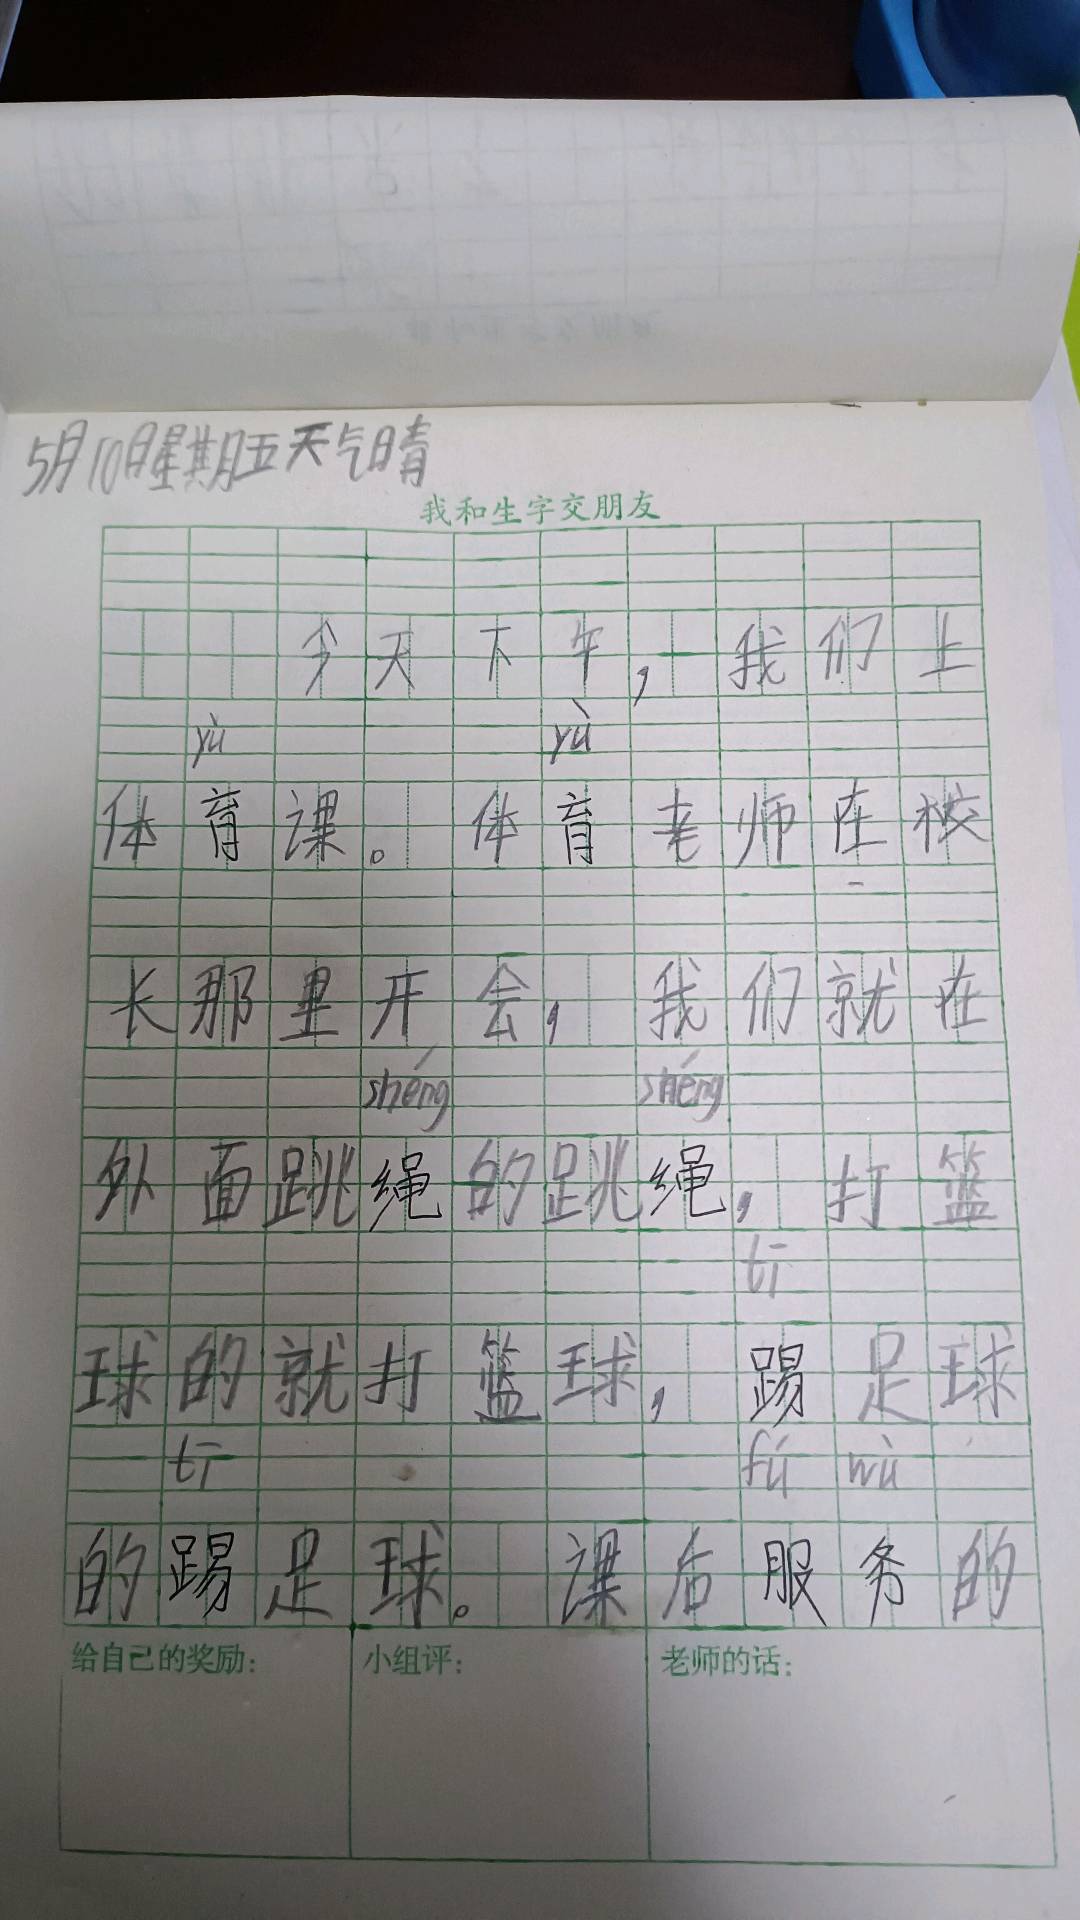 5月10日星期五天气晴
我和生字交朋友
今天下午，我们上
yù yù
体育课。体育老师在校
长那里开会，我们就在
shéng shéng
外面跳绳的跳绳，打篮
tī
球的就打篮球，踢足球
tī fú wù
的踢足球。课后服务的
给自己的奖励： 小组评： 老师的话：